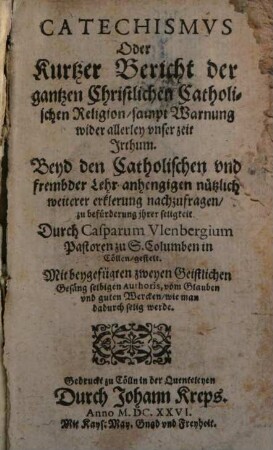 CATECHISMVS
Oder
Kurtzer Bericht der
gantzen Christlichen Catholi-
schen Religion/ sampt Warnung
wider allerley vnser zeit
Irthum.
Beyd den Catholischen vnd
frembder Lehr anhengigen nützlich
weiterer erklerung nachzufragen/
zu befürderung ihrer seligkeit
Durch Casparum Vlenbergium
Pastoren zu S. Columben in
Cöllen/ gestelt.
Mit beygefügten zweyen Geistlichen
Gesäng selbigen Authoris, vom Glauben
vnd guten Wercken/ wie man
dadurch selig werde.
Gedruckt zu Cölln in der Quenteleyen
Durch Johann Kreps.
Anno M. DC. XXVI.
Mit Kays: May. Gnad vnd Freyheit.